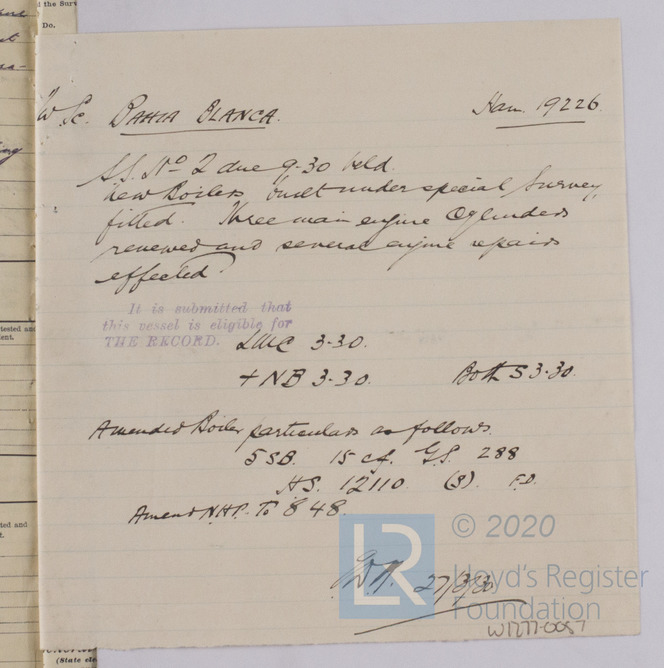 the Surv
Do.
W Sc. BAHIA BLANCA. Ham. 19226
S.S. No 2 due 9-30 held.
New Boilers built under special Survey,
fitted. Three main engine Cylinders
renewed and several engine repairs
effected.
It is submitted that
this vessel is eligible for
THE RECORD. LMC 3-30.
+ NB 3-30. Both S 3-30.
Amended Boiler particulars as follows.
5 SB. 15 cf. G.S. 288
HS. 12110. (S). F.D.
Amend N.H.P. To 848.
27/3/30
LR
© 2020
Lloyd's Register
Foundation
W1277-0057
tested and
ent.
ted and
t.
(State ele